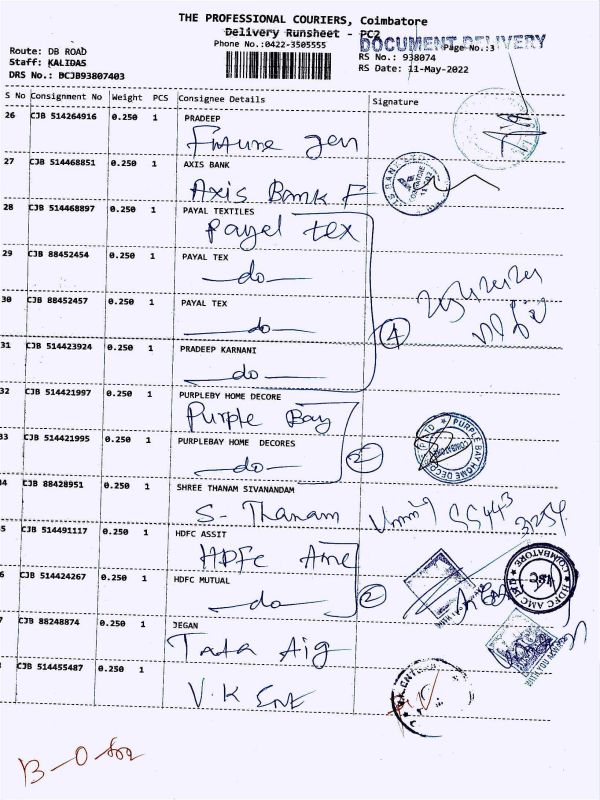 THE PROFESSIONAL COURIERS, Coimbatore
Delivery Runsheet - PC2
Phone No.:0422-3505555
DOCUMENT DELIVERY
Page No.:3
Route: DB ROAD
Staff: KALIDAS
DRS No.: BCJB93807403
RS No.: 938074
RS Date: 11-May-2022
S No Consignment No Weight PCS Consignee Details Signature
26 CJB 514264916 0.250 1 PRADEEP
Future Jen
27 CJB 514468851 0.250 1 AXIS BANK
Axis Bank F
28 CJB 514468897 0.250 1 PAYAL TEXTILES
Payel tex
29 CJB 88452454 0.250 1 PAYAL TEX
do
30 CJB 88452457 0.250 1 PAYAL TEX
do
4
31 CJB 514423924 0.250 1 PRADEEP KARNANI
do
32 CJB 514421997 0.250 1 PURPLEBY HOME DECORE
Purple Bay
33 CJB 514421995 0.250 1 PURPLEBAY HOME DECORES
do
2
PURPLE BAY HOME DECOR
4 CJB 88428951 0.250 1 SHREE THANAM SIVANANDAM
S- Thanam
5 CJB 514491117 0.250 1 HDFC ASSIT
HDFC Amc
HDFC AMC LTD COIMBATORE
6 CJB 514424267 0.250 1 HDFC MUTUAL
do
2
7 CJB 88248874 0.250 1 JEGAN
Tata Aig
CJB 514455487 0.250 1
V.K Ent